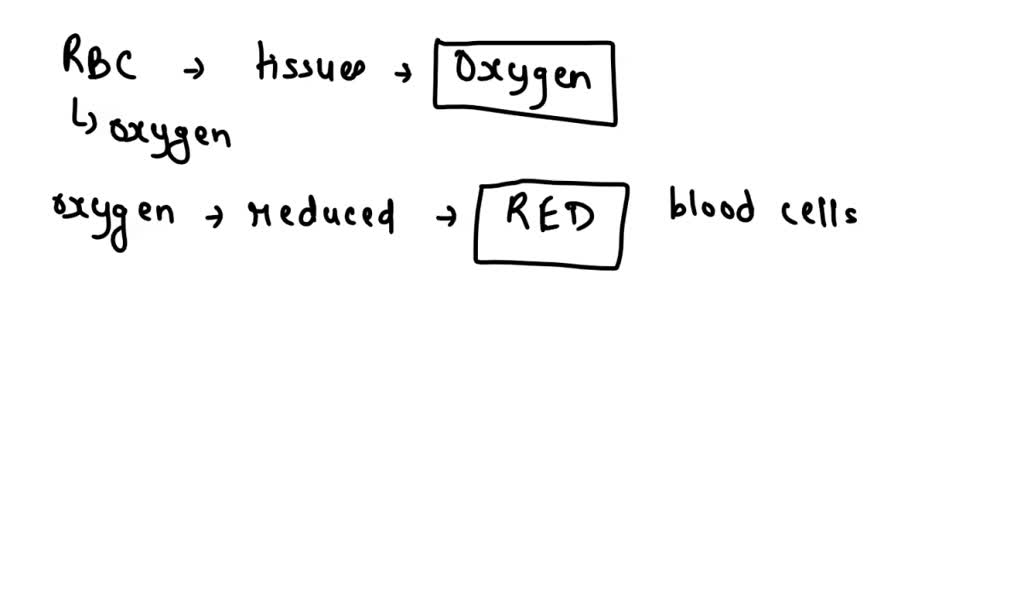 RBC → tissues → Oxygen
↳ oxygen
oxygen → reduced → RED blood cells